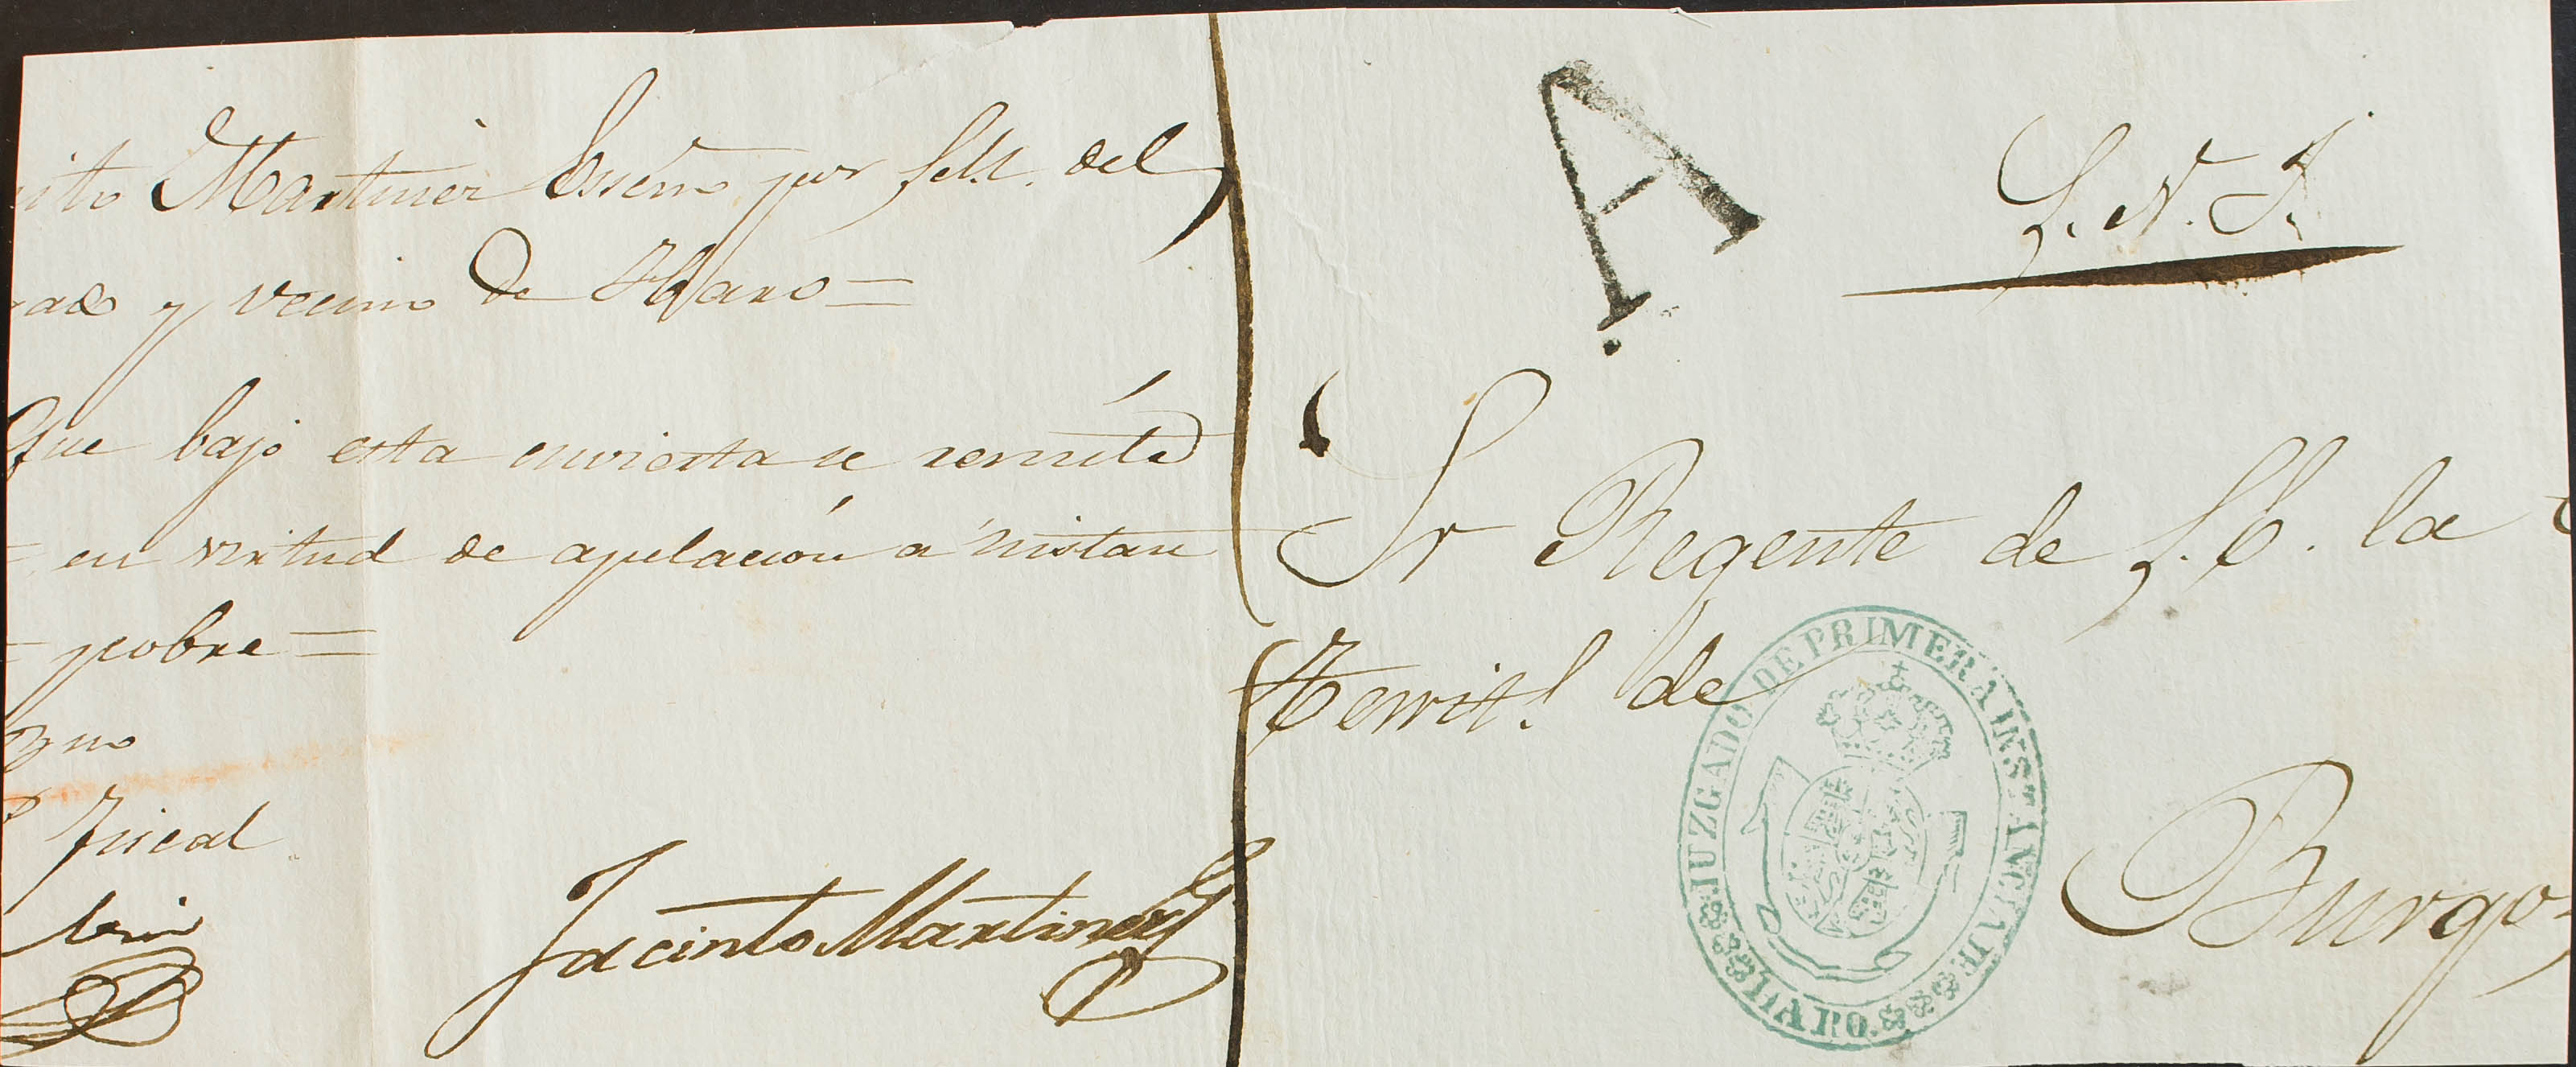 Martinez Essno por S.M. del
y vecino de Haro =
Que bajo esta cuvierta se remite
= en virtud de apelación a instan
= pobre =
Fiscal
Jacinto Martinez
A
S. N. J.
Sr Regente de S. E. la
Territl. de
Burgos
JUZGADO DE PRIMERA INSTANCIA DE HARO